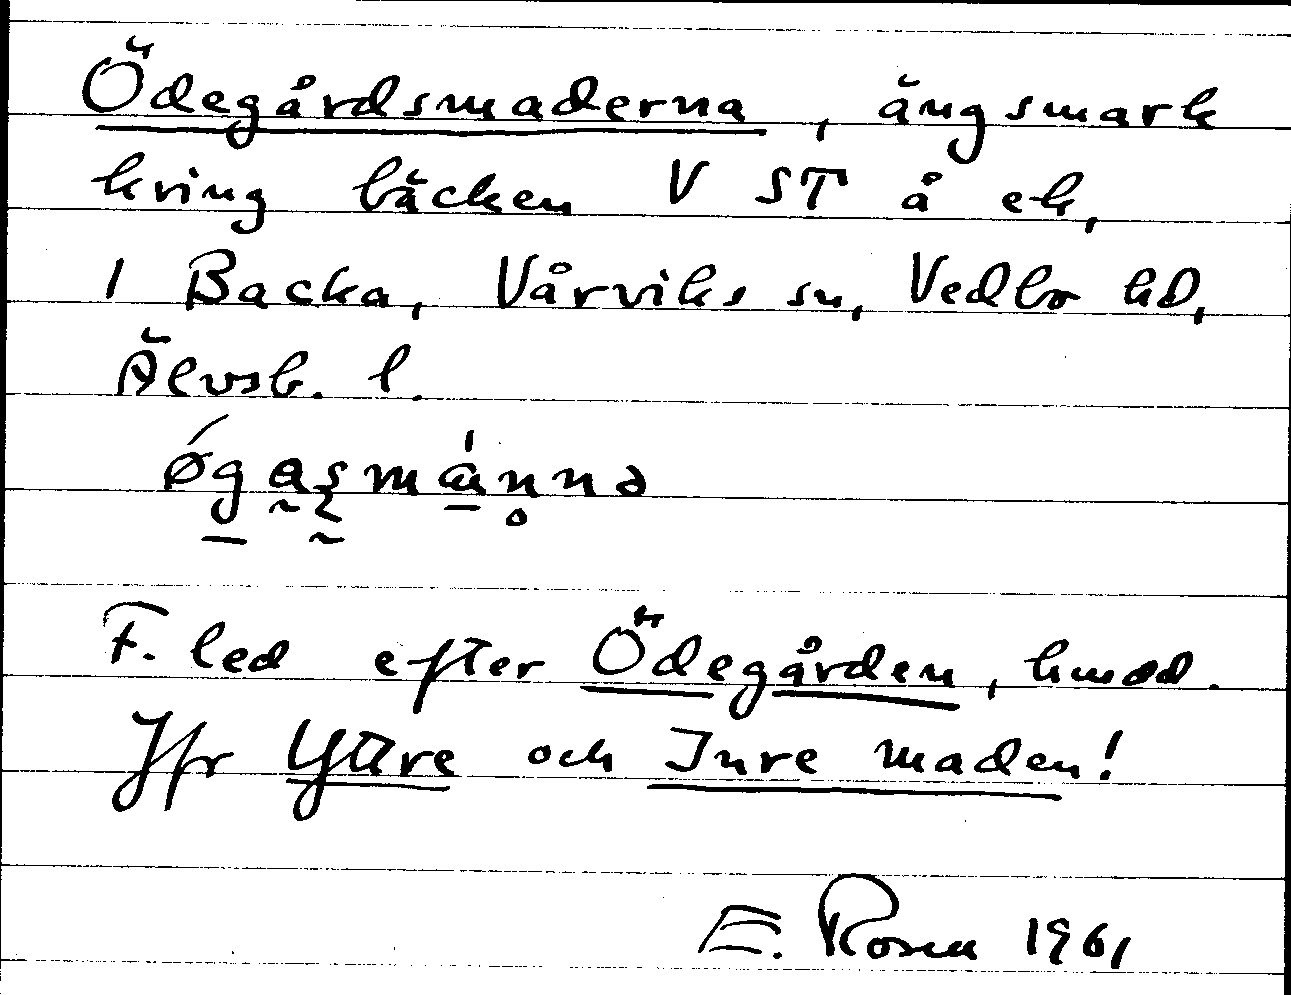 Ödegårdsmaderna, ängsmark
kring bäcken V ST å ek,
1 Backa, Vårviks sn, Vedbo hd,
Älvsb. l.
F. led efter Ödegården, hmdd.
Jfr Yttre och Inre maden!
E. Rosen 1961